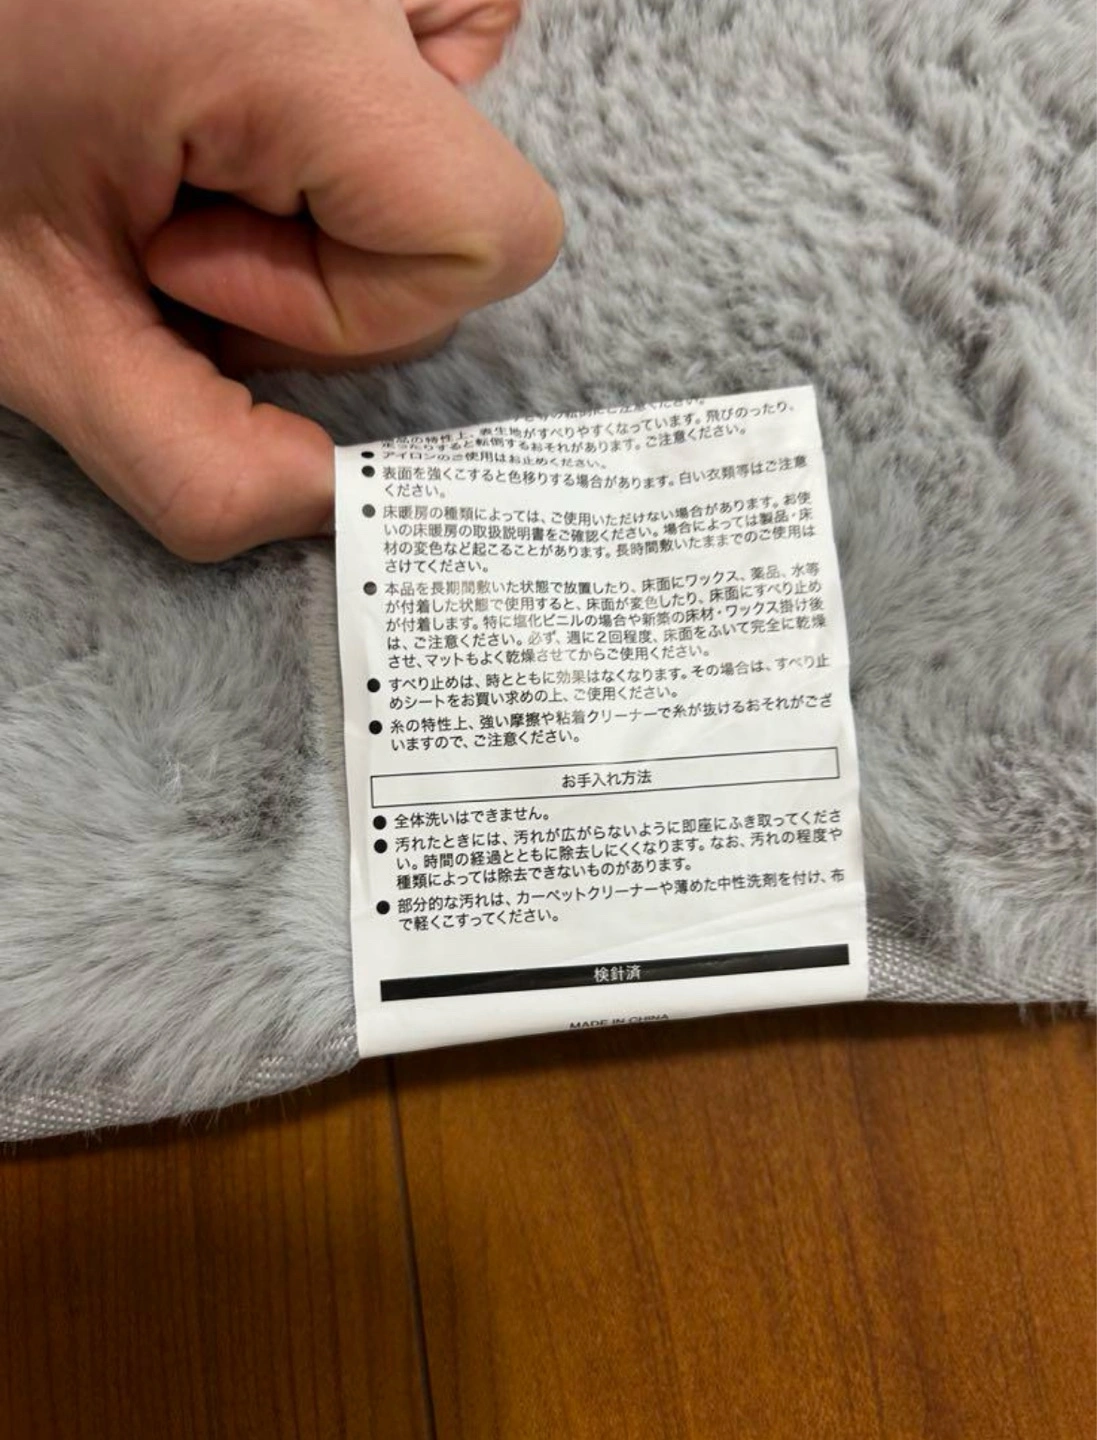 等の転倒にご注意ください。
特性上、表生地がすべりやすくなっています。飛びのったり、
走ったりすると転倒するおそれがあります。ご注意ください。
● アイロンのご使用はお止めください。
● 表面を強くこすると色移りする場合があります。白い衣類等はご注意
ください。
● 床暖房の種類によっては、ご使用いただけない場合があります。お使
いの床暖房の取扱説明書をご確認ください。場合によっては製品・床
材の変色など起こることがあります。長時間敷いたままでのご使用は
さけてください。
● 本品を長期間敷いた状態で放置したり、床面にワックス、薬品、水等
が付着した状態で使用すると、床面が変色したり、床面にすべり止め
が付着します。特に塩化ビニルの場合や新築の床材・ワックス掛け後
は、ご注意ください。必ず、週に2回程度、床面をふいて完全に乾燥
させ、マットもよく乾燥させてからご使用ください。
● すべり止めは、時とともに効果はなくなります。その場合は、すべり止
めシートをお買い求めの上、ご使用ください。
● 糸の特性上、強い摩擦や粘着クリーナーで糸が抜けるおそれがござ
いますので、ご注意ください。
お手入れ方法
● 全体洗いはできません。
● 汚れたときには、汚れが広がらないように即座にふき取ってくださ
い。時間の経過とともに除去しにくくなります。なお、汚れの程度や
種類によっては除去できないものがあります。
● 部分的な汚れは、カーペットクリーナーや薄めた中性洗剤を付け、布
で軽くこすってください。
検針済
MADE IN CHINA